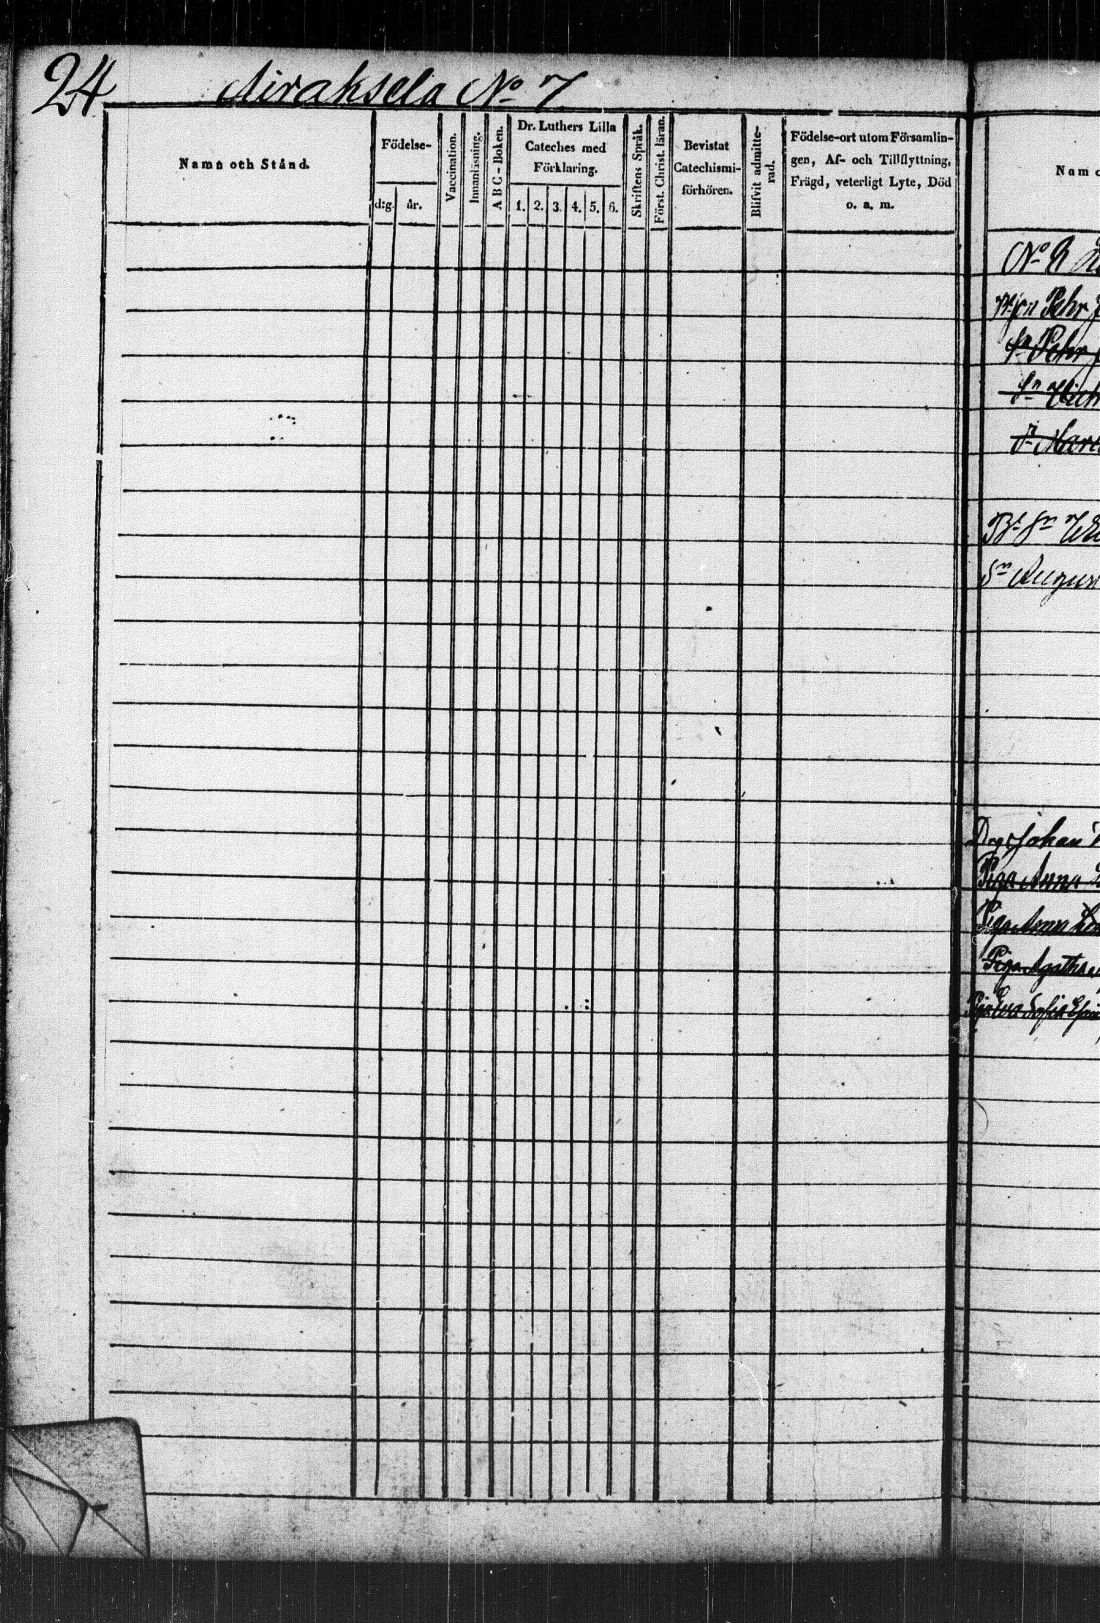 24 Airaksela No 7
Namn och Stånd.
Födelse-
dag.
år.
Vaccination.
Innanläsning.
A B C - Boken.
Dr. Luthers Lilla
Cateches med
Förklaring.
1. 2. 3. 4. 5. 6.
Skriftens Språk.
Först. Christ. läran.
Bevistat
Catechismi-
förhören.
Blifvit admitte-
rad.
Födelse-ort utom Församlin-
gen, Af- och Tillflyttning,
Frägd, veterligt Lyte, Död
o. a. m.
Nam
No
Pehr
Sn Pehr
Sn
Bd Sn
Sn August
Drg Johan
Piga Anna
Piga Anna
Piga Agatha
Piga Eva Sofia